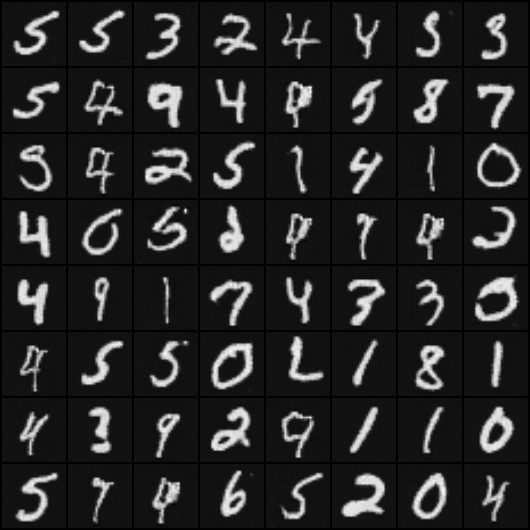 5 5 3 2 4 4
5 4 9 4 5 8 7
4 2 5 1 4 1 0
4 0 5 3
4 9 1 7 4 3 3 0
4 5 5 0 1 8 1
4 3 9 2 9 1 1 0
5 7 6 5 2 0 4